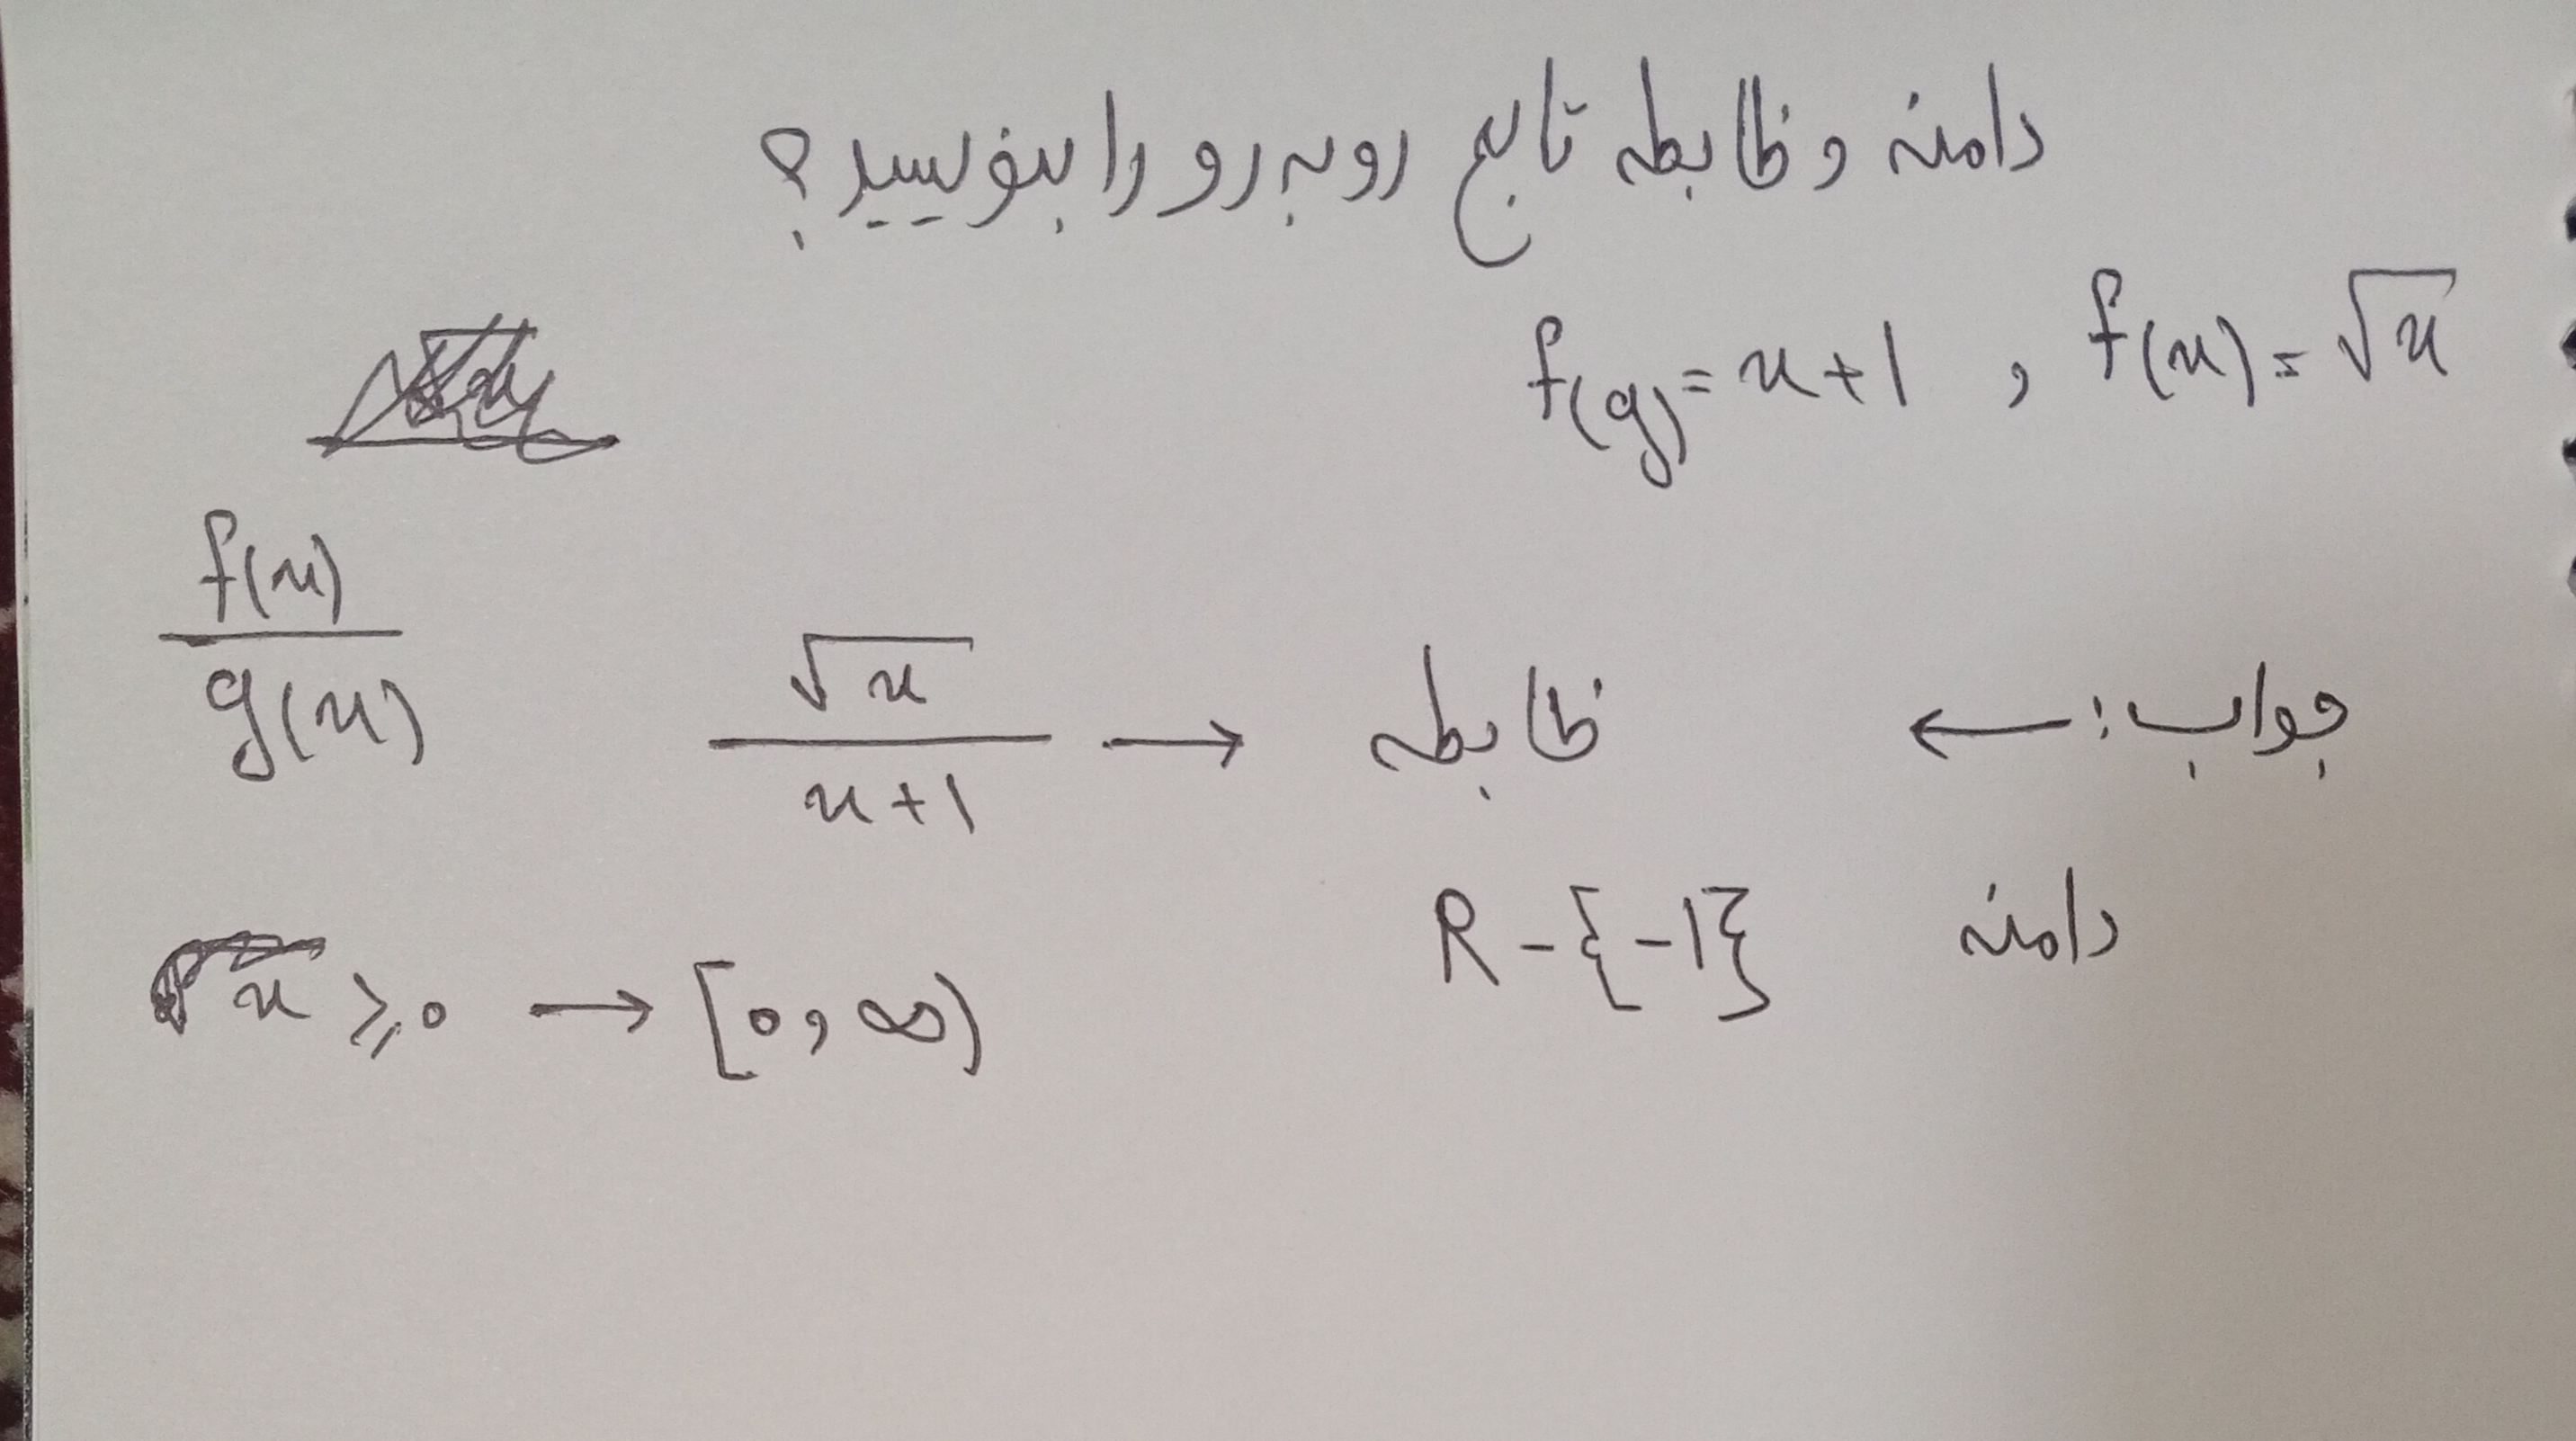 دامنه و ظابطه تابع روبه رو را بنویسید؟
f(x) = √x , f(g) = x+1
f(x)
g(x)
جواب: ← ظابطه → √x
x+1
دامنه R - {-1}
x ≥ 0 → [0, ∞)